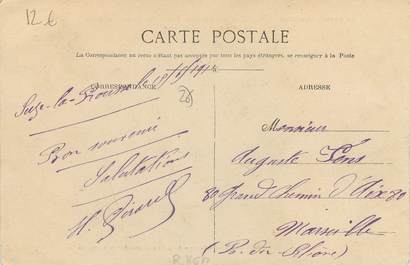 12 €
CARTE POSTALE
La Correspondance au recto n'étant pas acceptée par tous les pays étrangers, se renseigner à la Poste
Suze-la-Rousse le
CORRESPONDANCE
ADRESSE
Bon souvenir
Salutations
Monsieur
Auguste
80 Grand Chemin d'Aix 80
Marseille
(B. du Rhône)